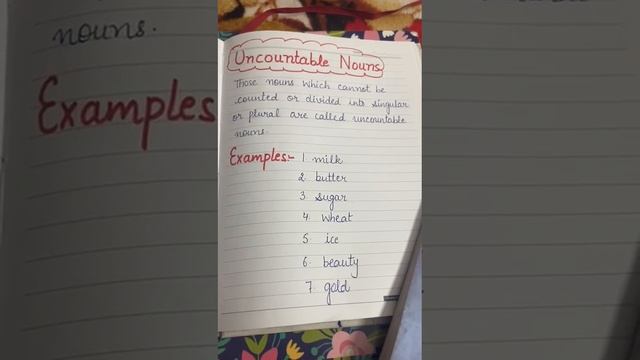 nouns.
Examples
Uncountable Nouns
Those nouns which cannot be
counted or divided into singular
or plural are called uncountable
nouns.
Examples:- 1. milk
2. butter
3. sugar
4. wheat
5. ice
6. beauty
7. gold